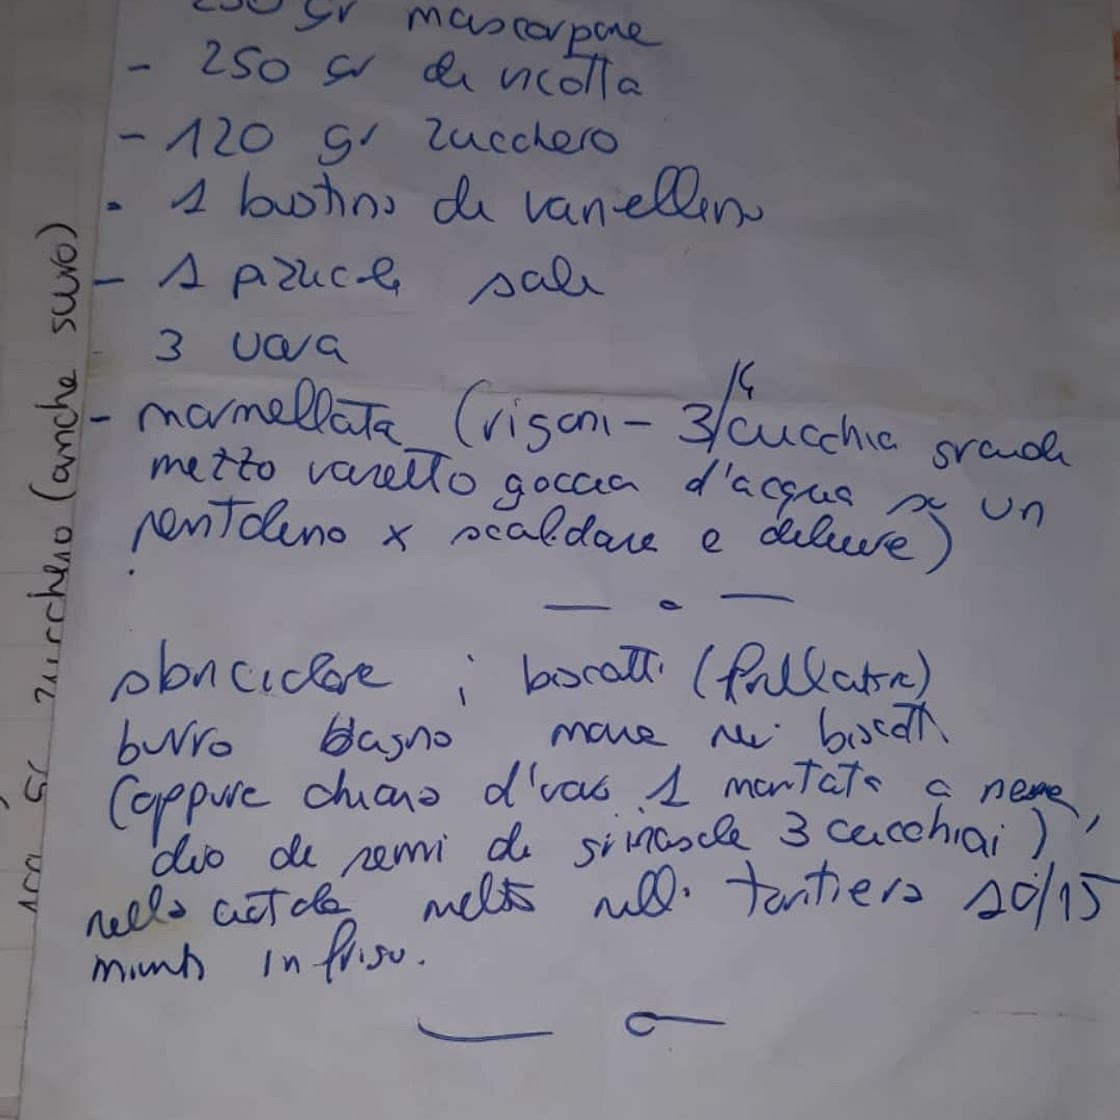 250 gr mascarpone
- 250 gr di ricotta
- 120 gr zucchero
- 1 bustina di vanellina
- 1 pizzico sale
3 uova
- marmellata (rigoni - 3/4 cucchia grandi
metto vasetto goccia d'acqua in un
pentolino x scaldare e diluire)
sbriciolare i biscotti (frullatore)
burro bagno mare nei biscotti
(oppure chiaro d'uovo 1 montata a neve,
olio di semi di girasole 3 cucchiai)
nella ciotola metto nella tortiera 10/15
minuti in frigo.
100 gr zucchero (anche scuro)